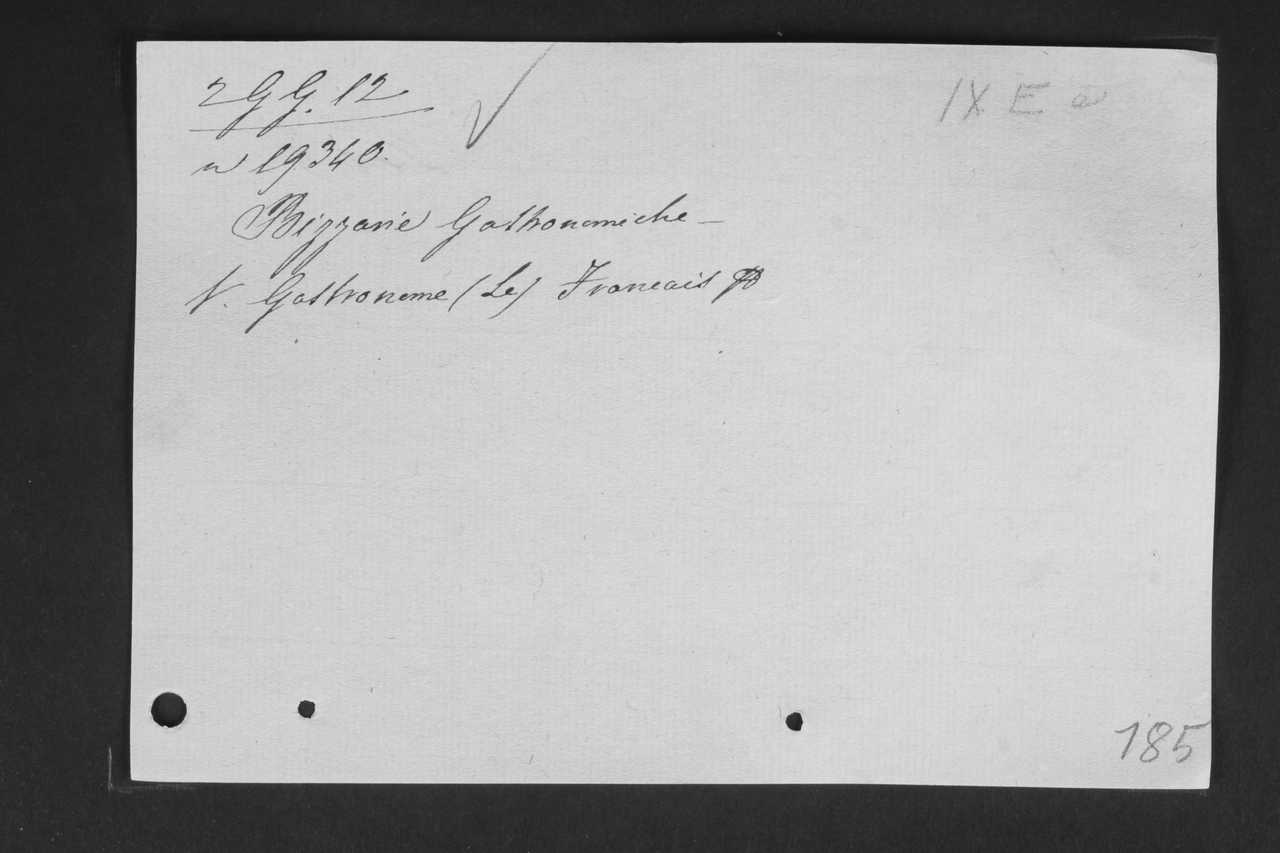 2 G G. 12
IX E a
n 19340.
Bizzarie Gastronomiche –
V. Gastronome (Le) Francais
185